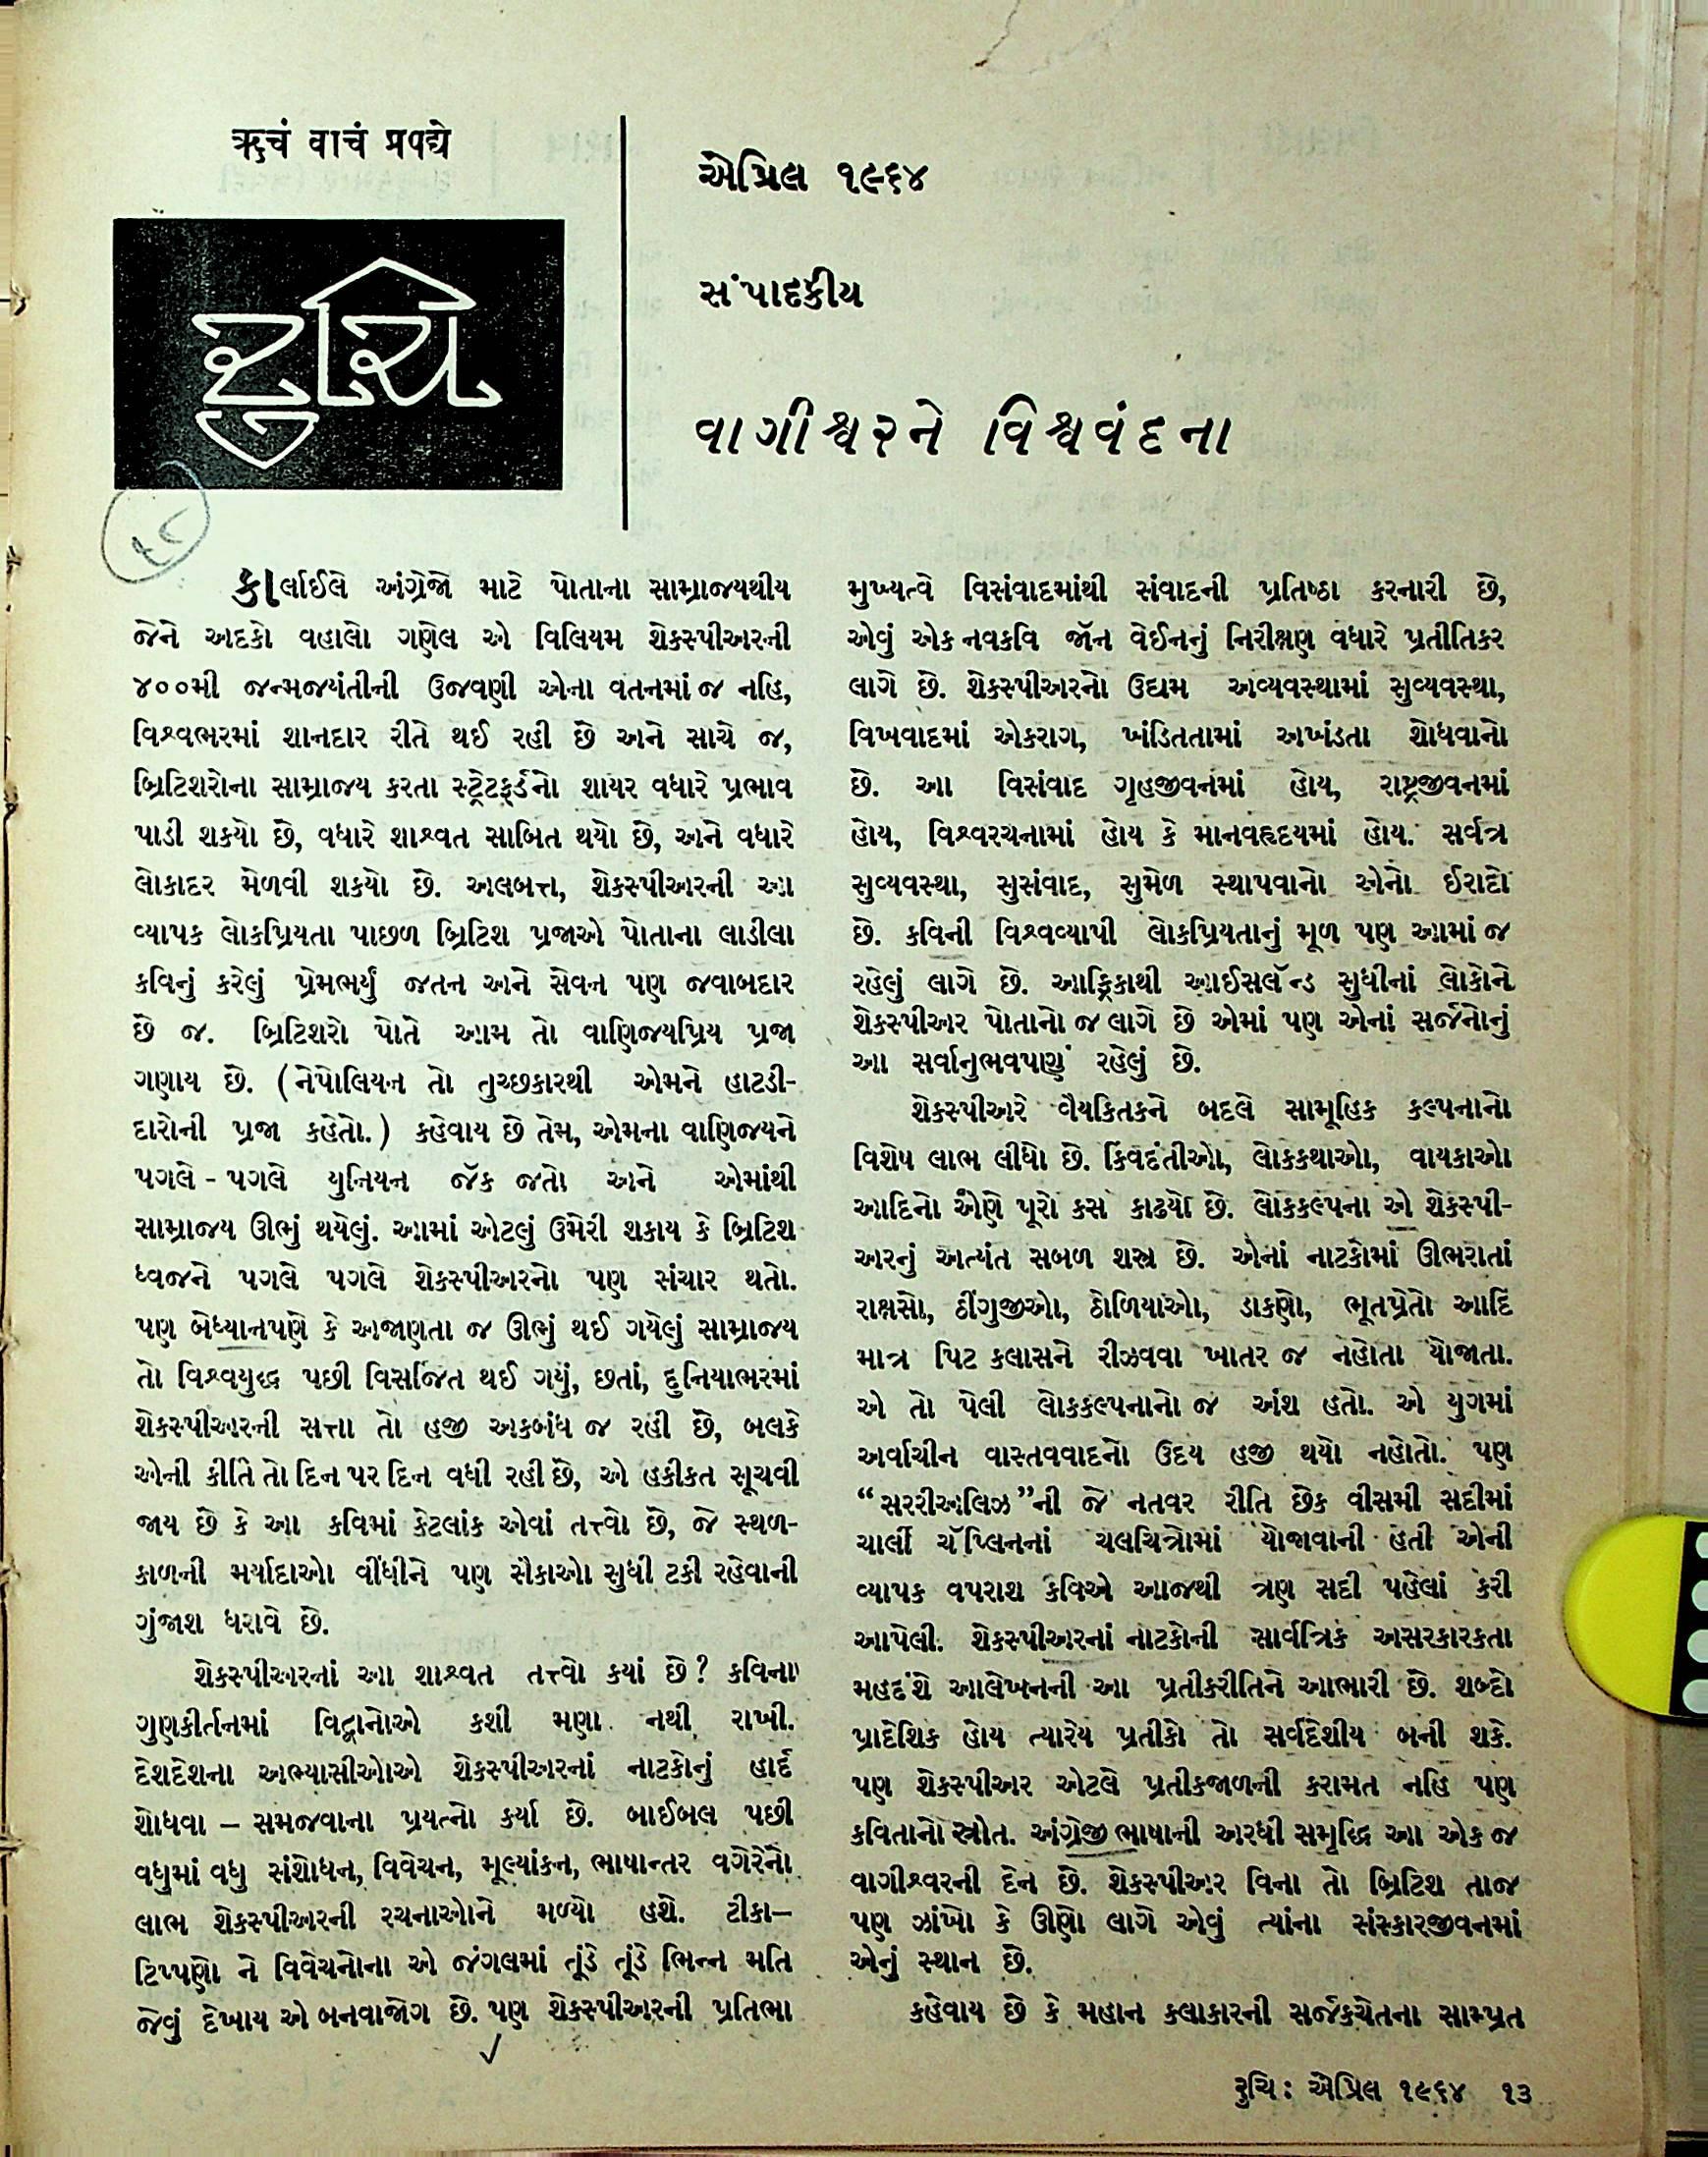 ઋચં વાચં પ્રપદ્યે
રુચિ
એપ્રિલ ૧૯૬૪
સંપાદકીય
વાગીશ્વરને વિશ્વવંદના
કાર્લાઈલે અંગ્રેજો માટે પોતાના સામ્રાજ્યથીય
જેને અદકો વહાલો ગણેલ એ વિલિયમ શેકસ્પીઅરની
૪૦૦મી જન્મજયંતીની ઉજવણી એના વતનમાં જ નહિ,
વિશ્વભરમાં શાનદાર રીતે થઈ રહી છે અને સાચે જ,
બ્રિટિશરોના સામ્રાજ્ય કરતા સ્ટ્રેટફર્ડનો શાયર વધારે પ્રભાવ
પાડી શકયો છે, વધારે શાશ્વત સાબિત થયો છે, અને વધારે
લોકાદર મેળવી શકયો છે. અલબત્ત, શેકસ્પીઅરની આ
વ્યાપક લોકપ્રિયતા પાછળ બ્રિટિશ પ્રજાએ પોતાના લાડીલા
કવિનું કરેલું પ્રેમભર્યું જતન અને સેવન પણ જવાબદાર
છે જ. બ્રિટિશરો પોતે આમ તો વાણિજ્યપ્રિય પ્રજા
ગણાય છે. (નેપોલિયન તો તુચ્છકારથી એમને હાટડી-
દારોની પ્રજા કહેતો.) કહેવાય છે તેમ, એમના વાણિજ્યને
પગલે - પગલે યુનિયન જૅક જતો અને એમાંથી
સામ્રાજ્ય ઊભું થયેલું. આમાં એટલું ઉમેરી શકાય કે બ્રિટિશ
ધ્વજને પગલે પગલે શેકસ્પીઅરનો પણ સંચાર થતો.
પણ બેધ્યાનપણે કે અજાણતા જ ઊભું થઈ ગયેલું સામ્રાજ્ય
તો વિશ્વયુદ્ધ પછી વિસર્જિત થઈ ગયું, છતાં, દુનિયાભરમાં
શેકસ્પીઅરની સત્તા તો હજી અકબંધ જ રહી છે, બલકે
એની કીર્તિ તો દિન પર દિન વધી રહી છે, એ હકીકત સૂચવી
જાય છે કે આ કવિમાં કેટલાંક એવાં તત્ત્વો છે, જે સ્થળ-
કાળની મર્યાદાઓ વીંધીને પણ સૈકાઓ સુધી ટકી રહેવાની
ગુંજાશ ધરાવે છે.
શેકસ્પીઅરનાં આ શાશ્વત તત્ત્વો કયાં છે? કવિના
ગુણકીર્તનમાં વિદ્વાનોએ કશી મણા નથી રાખી.
દેશદેશના અભ્યાસીઓએ શેકસ્પીઅરનાં નાટકોનું હાર્દ
શોધવા – સમજવાના પ્રયત્નો કર્યા છે. બાઈબલ પછી
વધુમાં વધુ સંશોધન, વિવેચન, મૂલ્યાંકન, ભાષાન્તર વગેરેનો
લાભ શેકસ્પીઅરની રચનાઓને મળ્યો હશે. ટીકા–
ટિપ્પણો ને વિવેચનોના એ જંગલમાં તૂંડે તૂંડે ભિન્ન મતિ
જેવું દેખાય એ બનવાજોગ છે. પણ શેકસ્પીઅરની પ્રતિભા
મુખ્યત્વે વિસંવાદમાંથી સંવાદની પ્રતિષ્ઠા કરનારી છે,
એવું એક નવકવિ જૉન વેઈનનું નિરીક્ષણ વધારે પ્રતીતિકર
લાગે છે. શેકસ્પીઅરનો ઉદ્યમ અવ્યવસ્થામાં સુવ્યવસ્થા,
વિખવાદમાં એકરાગ, ખંડિતતામાં અખંડતા શોધવાનો
છે. આ વિસંવાદ ગૃહજીવનમાં હોય, રાષ્ટ્રજીવનમાં
હોય, વિશ્વરચનામાં હોય કે માનવહૃદયમાં હોય. સર્વત્ર
સુવ્યવસ્થા, સુસંવાદ, સુમેળ સ્થાપવાનો એનો ઈરાદો
છે. કવિની વિશ્વવ્યાપી લોકપ્રિયતાનું મૂળ પણ આમાં જ
રહેલું લાગે છે. આફ્રિકાથી આઈસલૅન્ડ સુધીનાં લોકોને
શેકસ્પીઅર પોતાનો જ લાગે છે એમાં પણ એનાં સર્જનોનું
આ સર્વાનુભવપણું રહેલું છે.
શેકસ્પીઅરે વૈયકિતકને બદલે સામૂહિક કલ્પનાનો
વિશેષ લાભ લીધો છે. કિંવદંતીઓ, લોકકથાઓ, વાયકાઓ
આદિનો એણે પૂરો કસ કાઢયો છે. લોકકલ્પના એ શેકસ્પી-
અરનું અત્યંત સબળ શસ્ત્ર છે. એનાં નાટકોમાં ઊભરાતાં
રાક્ષસો, ઠીંગુજીઓ, ઠોળિયાઓ, ડાકણો, ભૂતપ્રેતો આદિ
માત્ર પિટ કલાસને રીઝવવા ખાતર જ નહોતા યોજાતા.
એ તો પેલી લોકકલ્પનાનો જ અંશ હતો. એ યુગમાં
અર્વાચીન વાસ્તવવાદનો ઉદય હજી થયો નહોતો. પણ
“સરરીઅલિઝ”ની જે નતવર રીતિ છેક વીસમી સદીમાં
ચાર્લી ચૅપ્લિનનાં ચલચિત્રોમાં યોજાવાની હતી એની
વ્યાપક વપરાશ કવિએ આજથી ત્રણ સદી પહેલાં કરી
આપેલી. શેકસ્પીઅરનાં નાટકોની સાર્વત્રિક અસરકારકતા
મહદંશે આલેખનની આ પ્રતીકરીતિને આભારી છે. શબ્દો
પ્રાદેશિક હોય ત્યારેય પ્રતીકો તો સર્વદેશીય બની શકે.
પણ શેકસ્પીઅર એટલે પ્રતીકજાળની કરામત નહિ પણ
કવિતાનો સ્રોત. અંગ્રેજી ભાષાની અરધી સમૃદ્ધિ આ એક જ
વાગીશ્વરની દેન છે. શેકસ્પીઅર વિના તો બ્રિટિશ તાજ
પણ ઝાંખો કે ઊણો લાગે એવું ત્યાંના સંસ્કારજીવનમાં
એનું સ્થાન છે.
કહેવાય છે કે મહાન કલાકારની સર્જકચેતના સામ્પ્રત
રુચિ: એપ્રિલ ૧૯૬૪ ૧૩